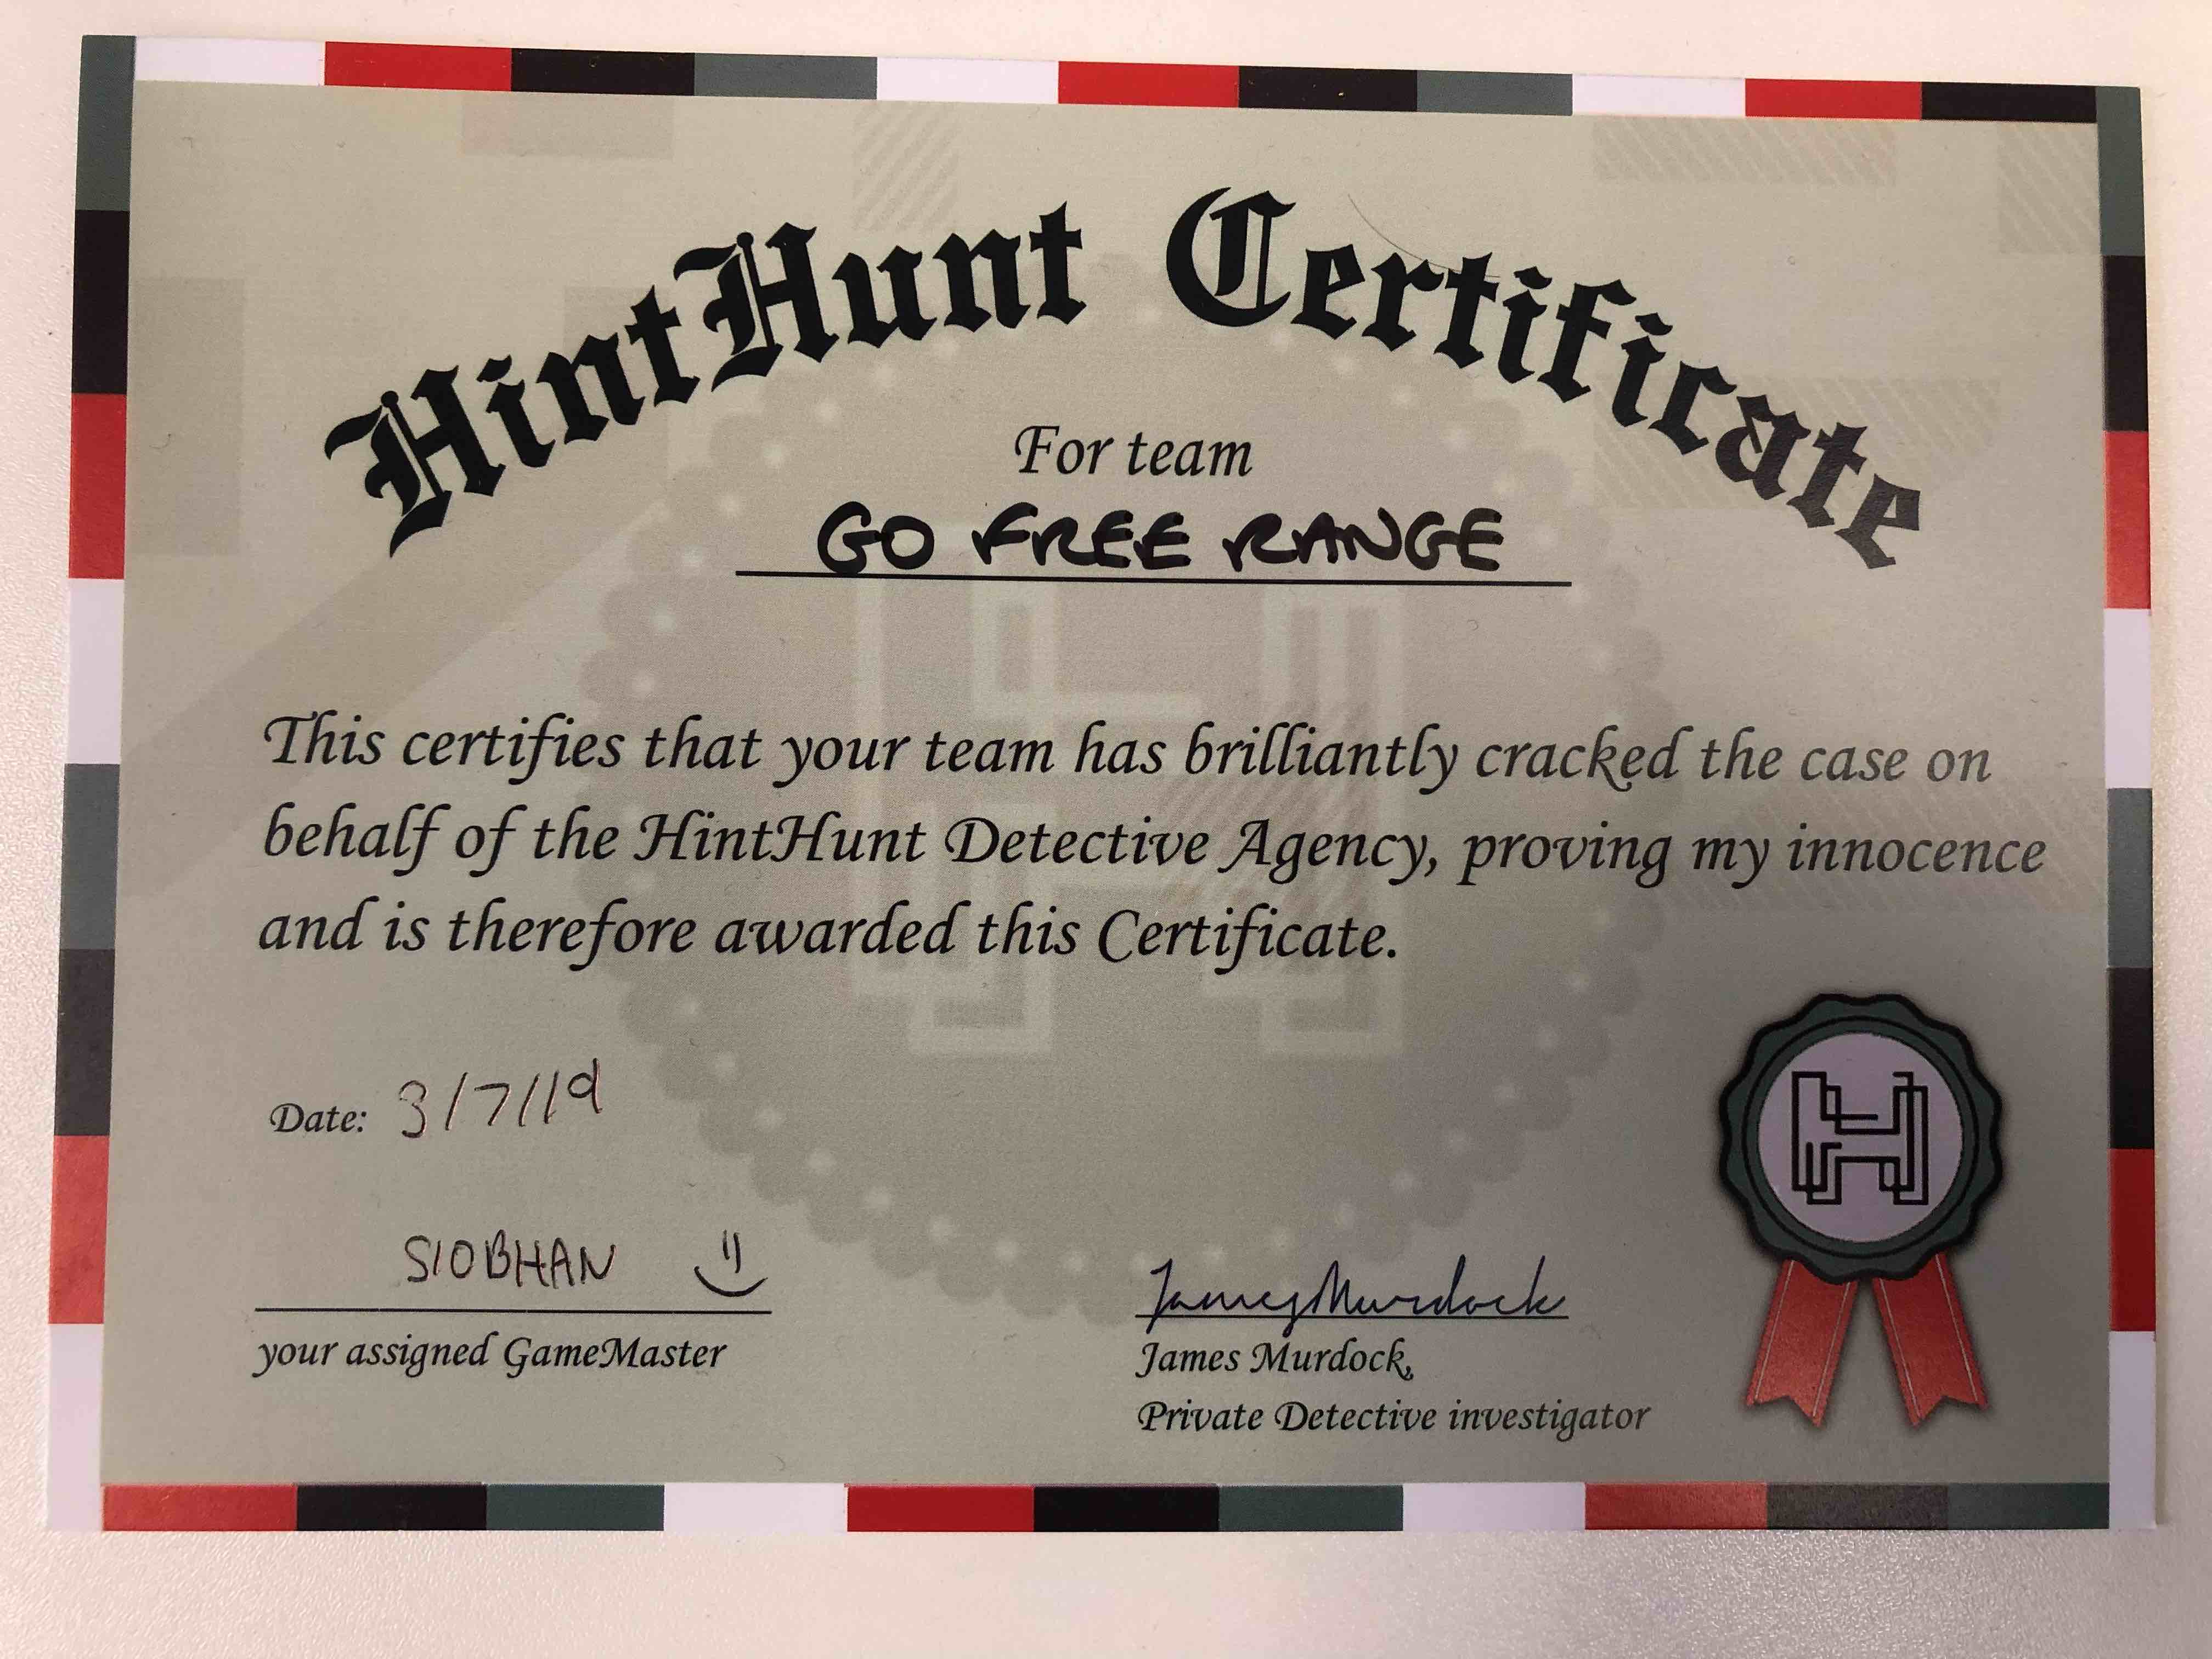 HintHunt Certificate
For team
GO FREE RANGE
This certifies that your team has brilliantly cracked the case on
behalf of the HintHunt Detective Agency, proving my innocence
and is therefore awarded this Certificate.
Date: 3/7/19
SIOBHAN
your assigned GameMaster
James Murdock
James Murdock,
Private Detective investigator
H